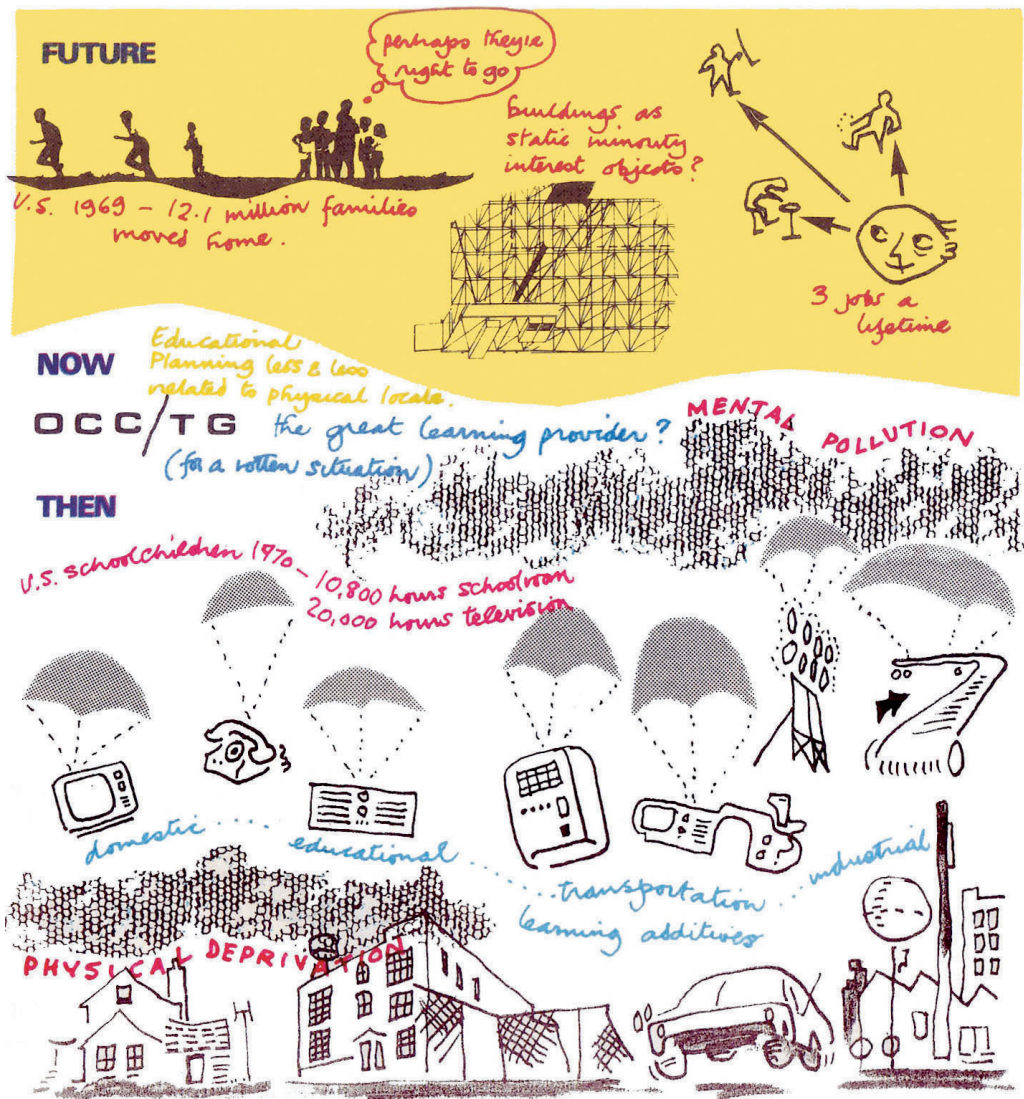 FUTURE
perhaps they're
right to go
buildings as
static minority
interest objects?
U.S. 1969 – 12.1 million families
moved home.
3 jobs a
lifetime
NOW
Educational
Planning less & less
related to physical locale.
OCC/TG
the great learning provider?
(for a rotten situation)
MENTAL POLLUTION
THEN
U.S. schoolchildren 1970 – 10,800 hours schoolroom
20,000 hours television
domestic .... educational ....... transportation ... industrial
learning additives
PHYSICAL DEPRIVATION